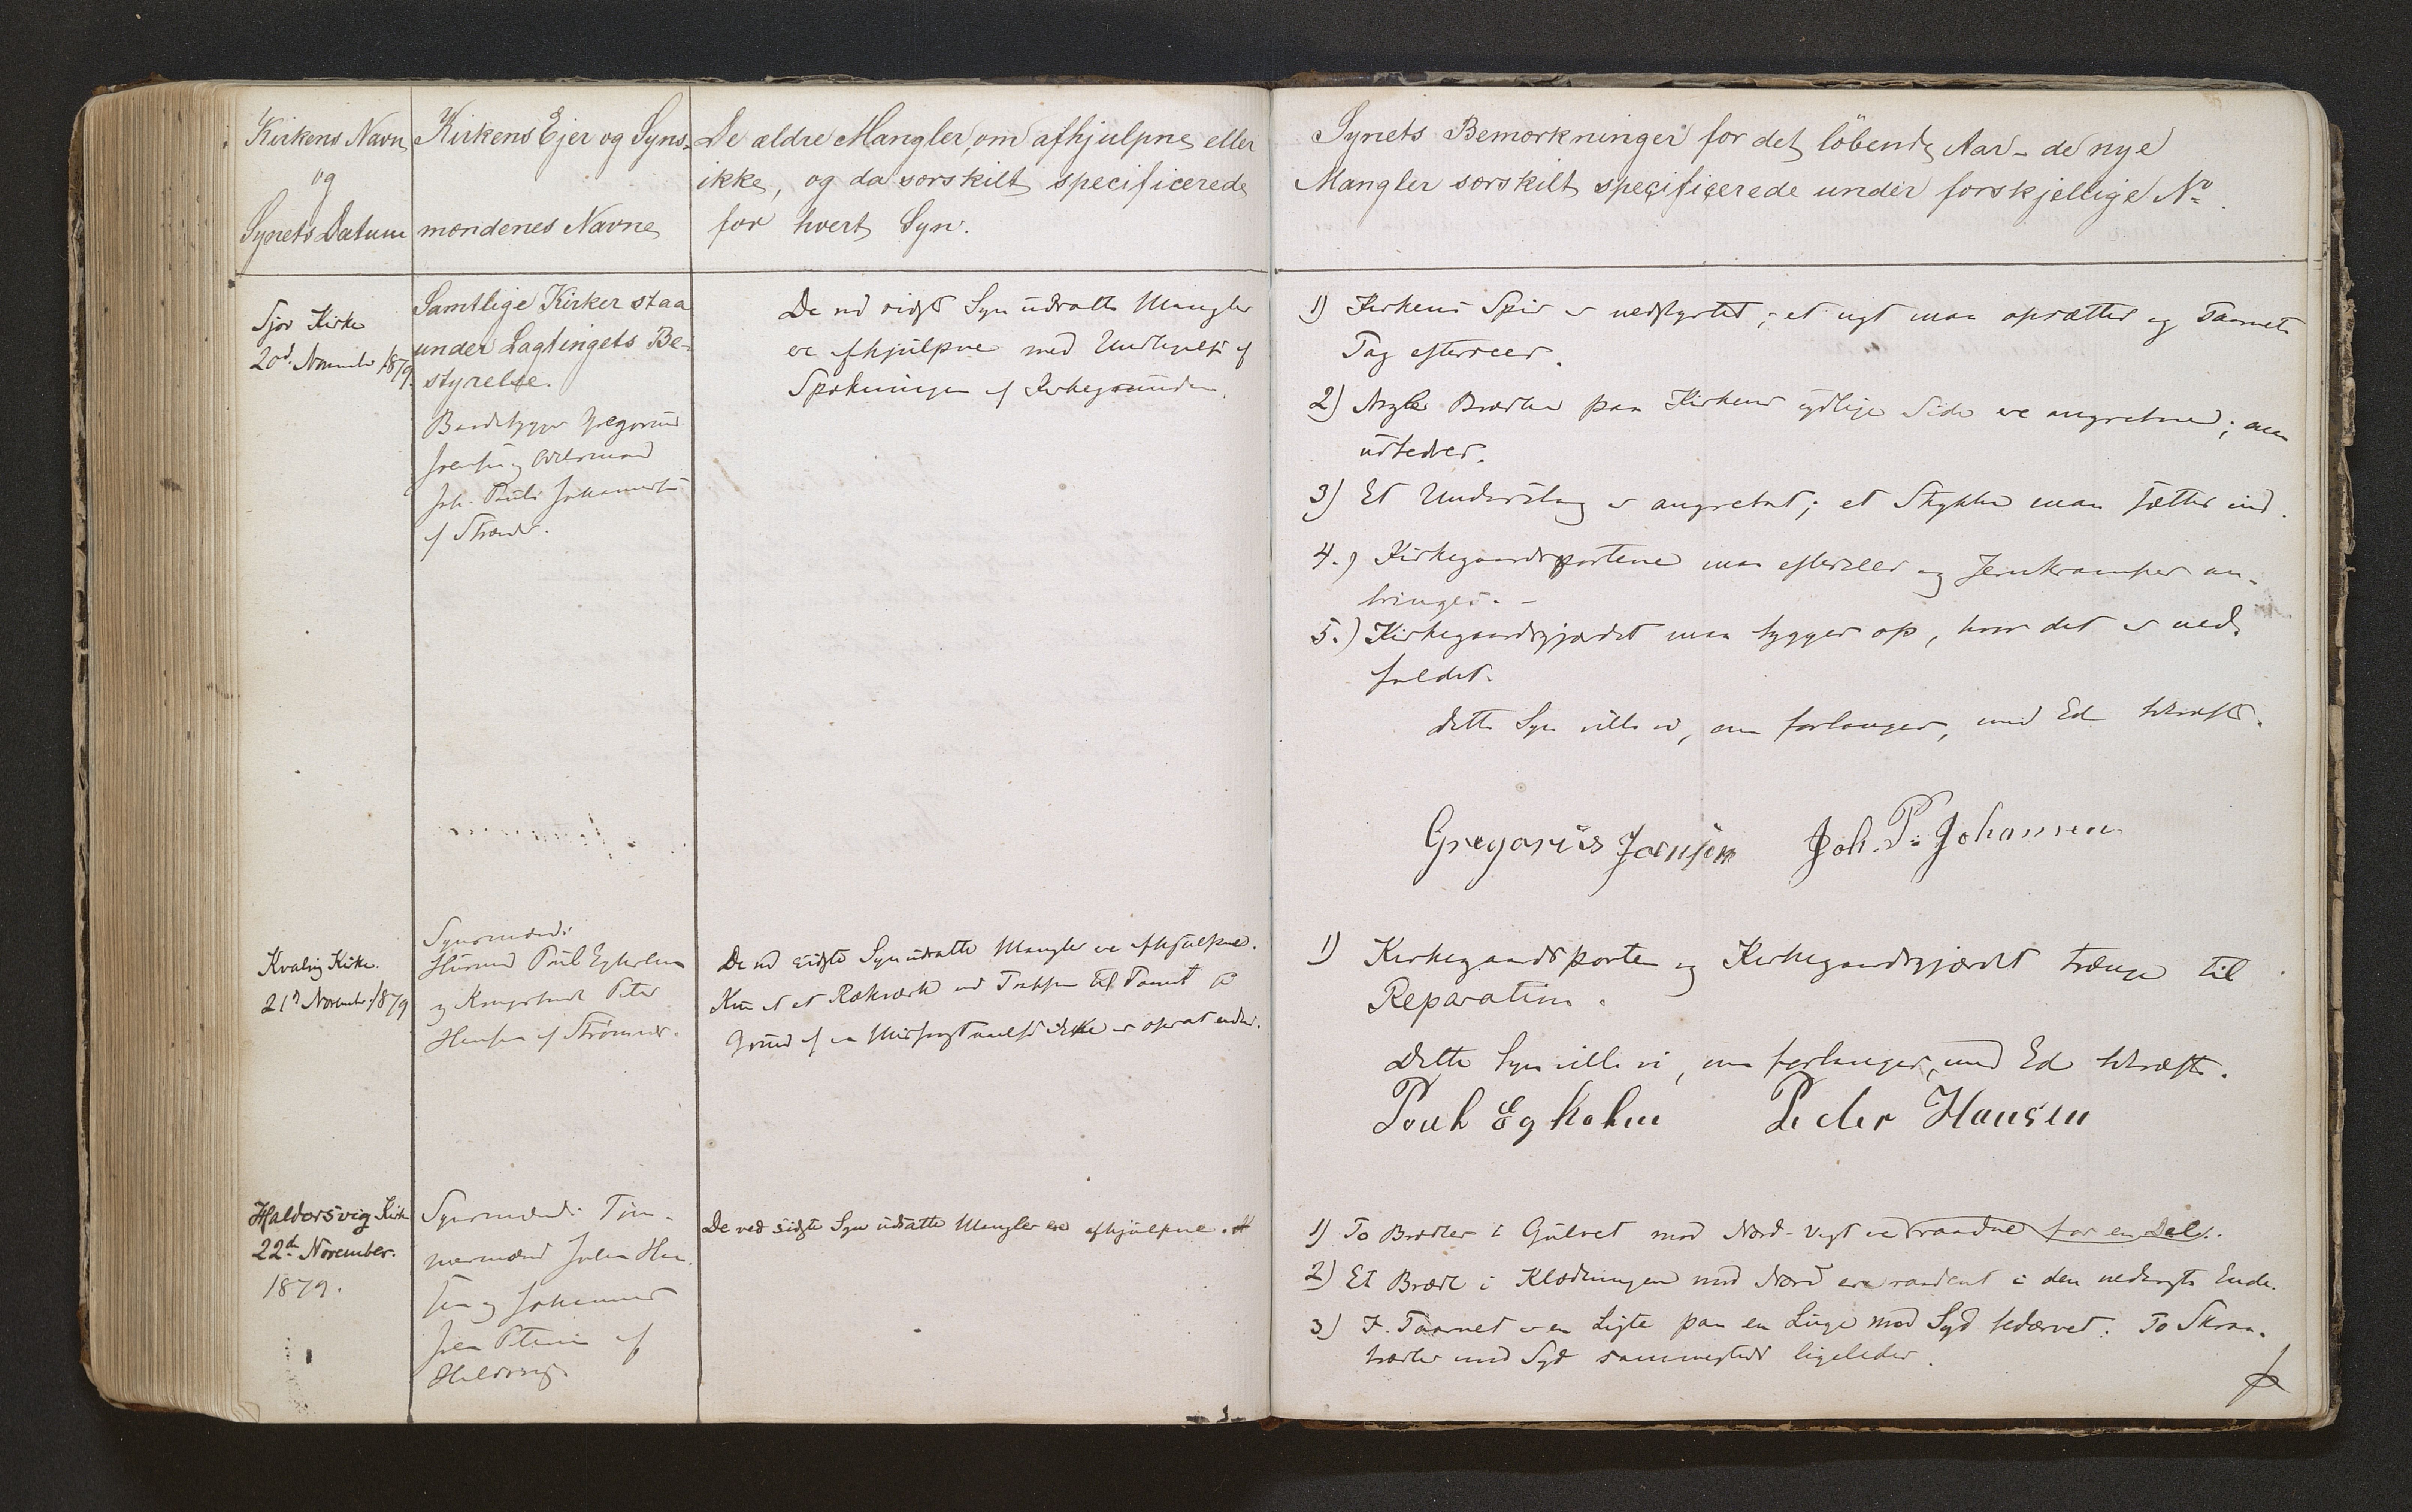 Kirkens Navn
og
Synets Datum
Kirkens Ejer og Syns-
mændenes Navne
De ældre Mangler, om afhjulpne eller
ikke, og da særskilt specificerede
for hvert Syn.
Synets Bemærkninger for det löbende Aar - de nye
Mangler særskilt specificerede under forskjellige No.
Sjov Kirke
20d. November 1879.
Samtlige Kirker staa
under Lagtingets Be-
styrelse.
Baadebygger Gregorius
Joensen og
Joh. Pauli Johannesen
af Strænder.
De ved sidste Syn udsatte Mangler
ere afhjulpne med Undtagelse af
Spækningen af Kirkegrunden.
1) Kirkens Spir er nedstyrtet; et nyt maa opsættes og Taarnets
Tag efterseees.
2) Nogle Brædder paa Kirkens sydlige Side ere angrebne; maa
udbedres.
3) Et Underslag er angrebet; et Stykke maa sættes ind.
4.) Kirkegaardsportene maa eftersees og Jernkramper an-
bringes. -
5.) Kirkegaardsgjærdet maa bygges op, hvor det er ned-
faldet.
Dette Syn ville vi, om forlanges, med Ed bekræfte.
Gregorius Joensen Joh. P. Johannesen
Kvalvig Kirke.
21d November 1879
Synsmænd:
Paul Egholm
og Kongsbonde Peter
Hansen af Strømnæs.
De ved sidste Syn udsatte Mangler ere afhjulpne.
Kun et Rækværk ved Trappen til Taarnet paa
Grund af en Misforstaaelse ikke er opsat endnu.
1) Kirkegaardsporten og Kirkegaardsgjærdet trænge til
Reparation.
Dette Syn ville vi, om forlanges, med Ed bekræfte.
Poul Egholm Peder Hansen
Haldorsvig Kirke
22d. November.
1879.
Synsmænd: Töm-
mermænd Johan Han-
sen og Johannes
af
Haldorsvig.
De ved sidste Syn udsatte Mangler ere afhjulpne.
1) To Brædder i Gulvet mod Nord-Vest ere raadne for en Del.
2) Et Bræt i Klædningen mod Nord ere raadent i den nederste Ende.
3) I Taarnet er en Ligte paa en Luge mod Syd bedærvet. To Skraa-
brædder mod Syd sammesteds ligeledes.